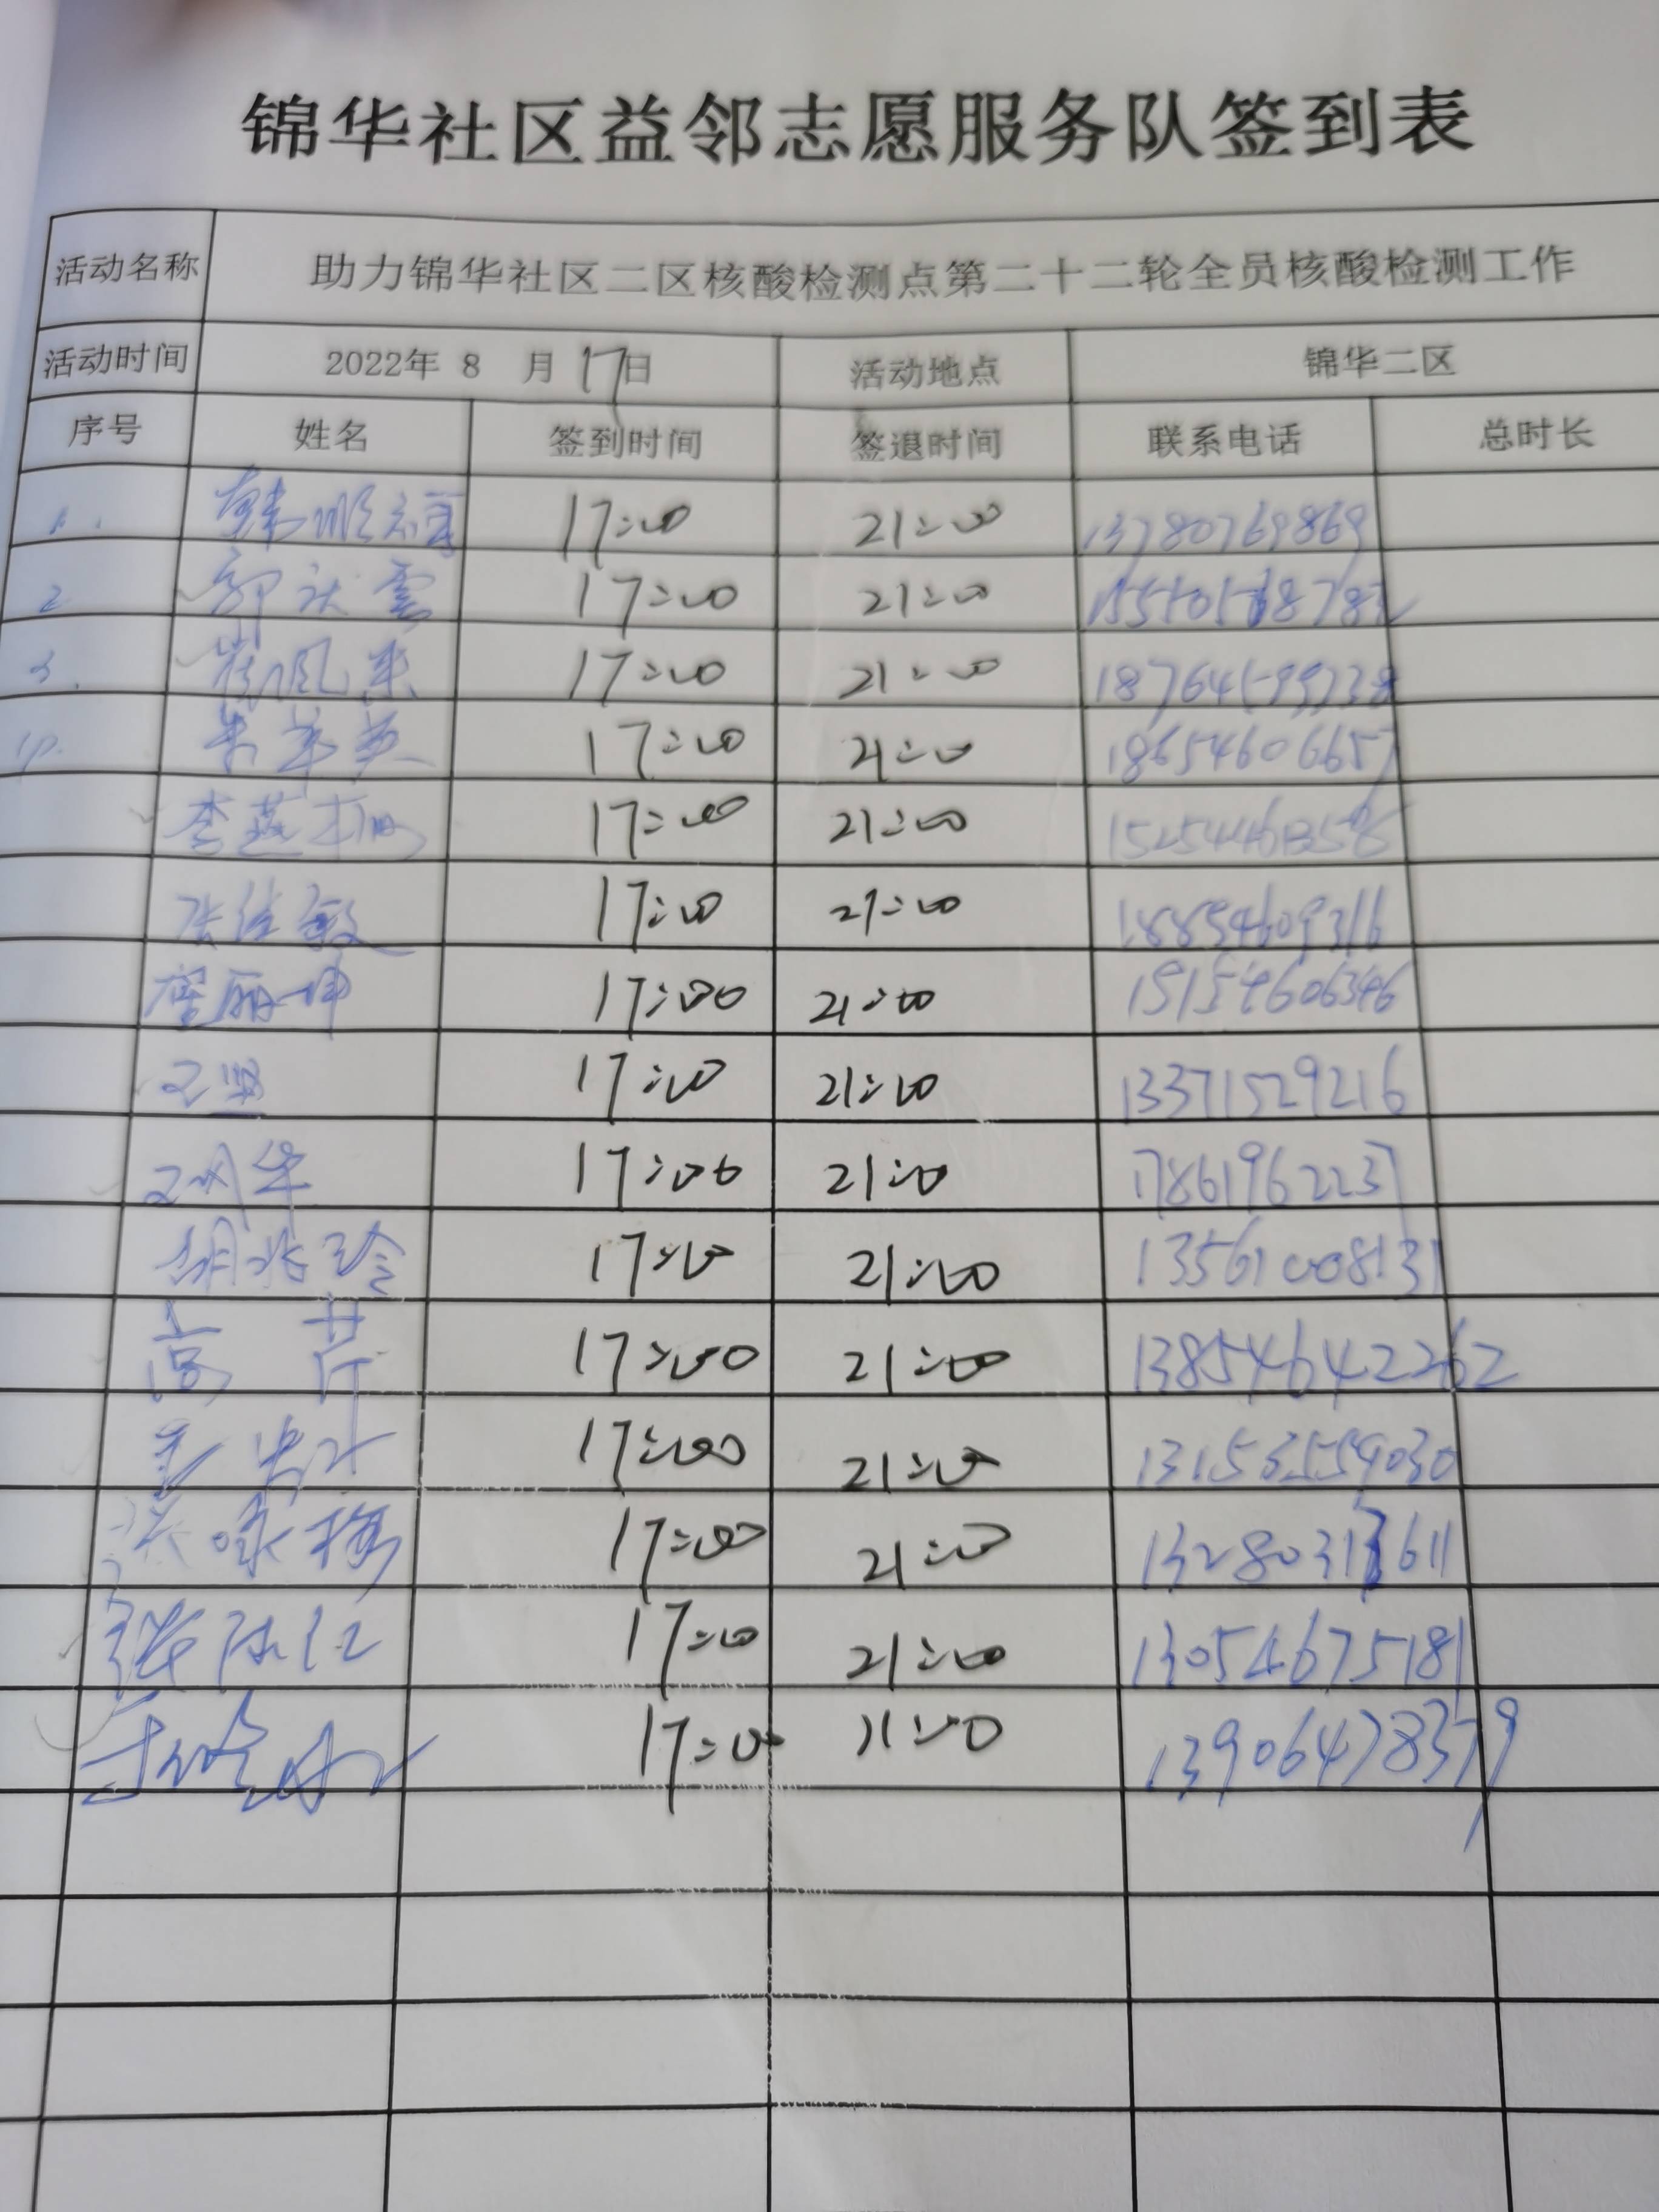 锦华社区益邻志愿服务队签到表
活动名称 助力锦华社区二区核酸检测点第二十二轮全员核酸检测工作
活动时间 2022年 8 月 17日 活动地点 锦华二区
序号 姓名 签到时间 签退时间 联系电话 总时长
1. 韩顺 17:00 21:00 13780769869
2 郭秋云 17:00 21:00
3. 崔凤来 17:00 21:00 18764599738
4. 17:00 21:00 18654606657
李燕 17:00 21:00
张佳敏 17:00 21:00 18854609316
丽坤 17:00 21:00 15154606346
17:00 21:00 13371529216
17:00 21:00 17861962237
胡兆玲 17:00 21:00 13561008131
高芹 17:00 21:00 13854642262
17:00 21:00 13153559030
咏梅 17:00 21:00
17:00 21:00 13054675181
17:00 21:00 13906478379